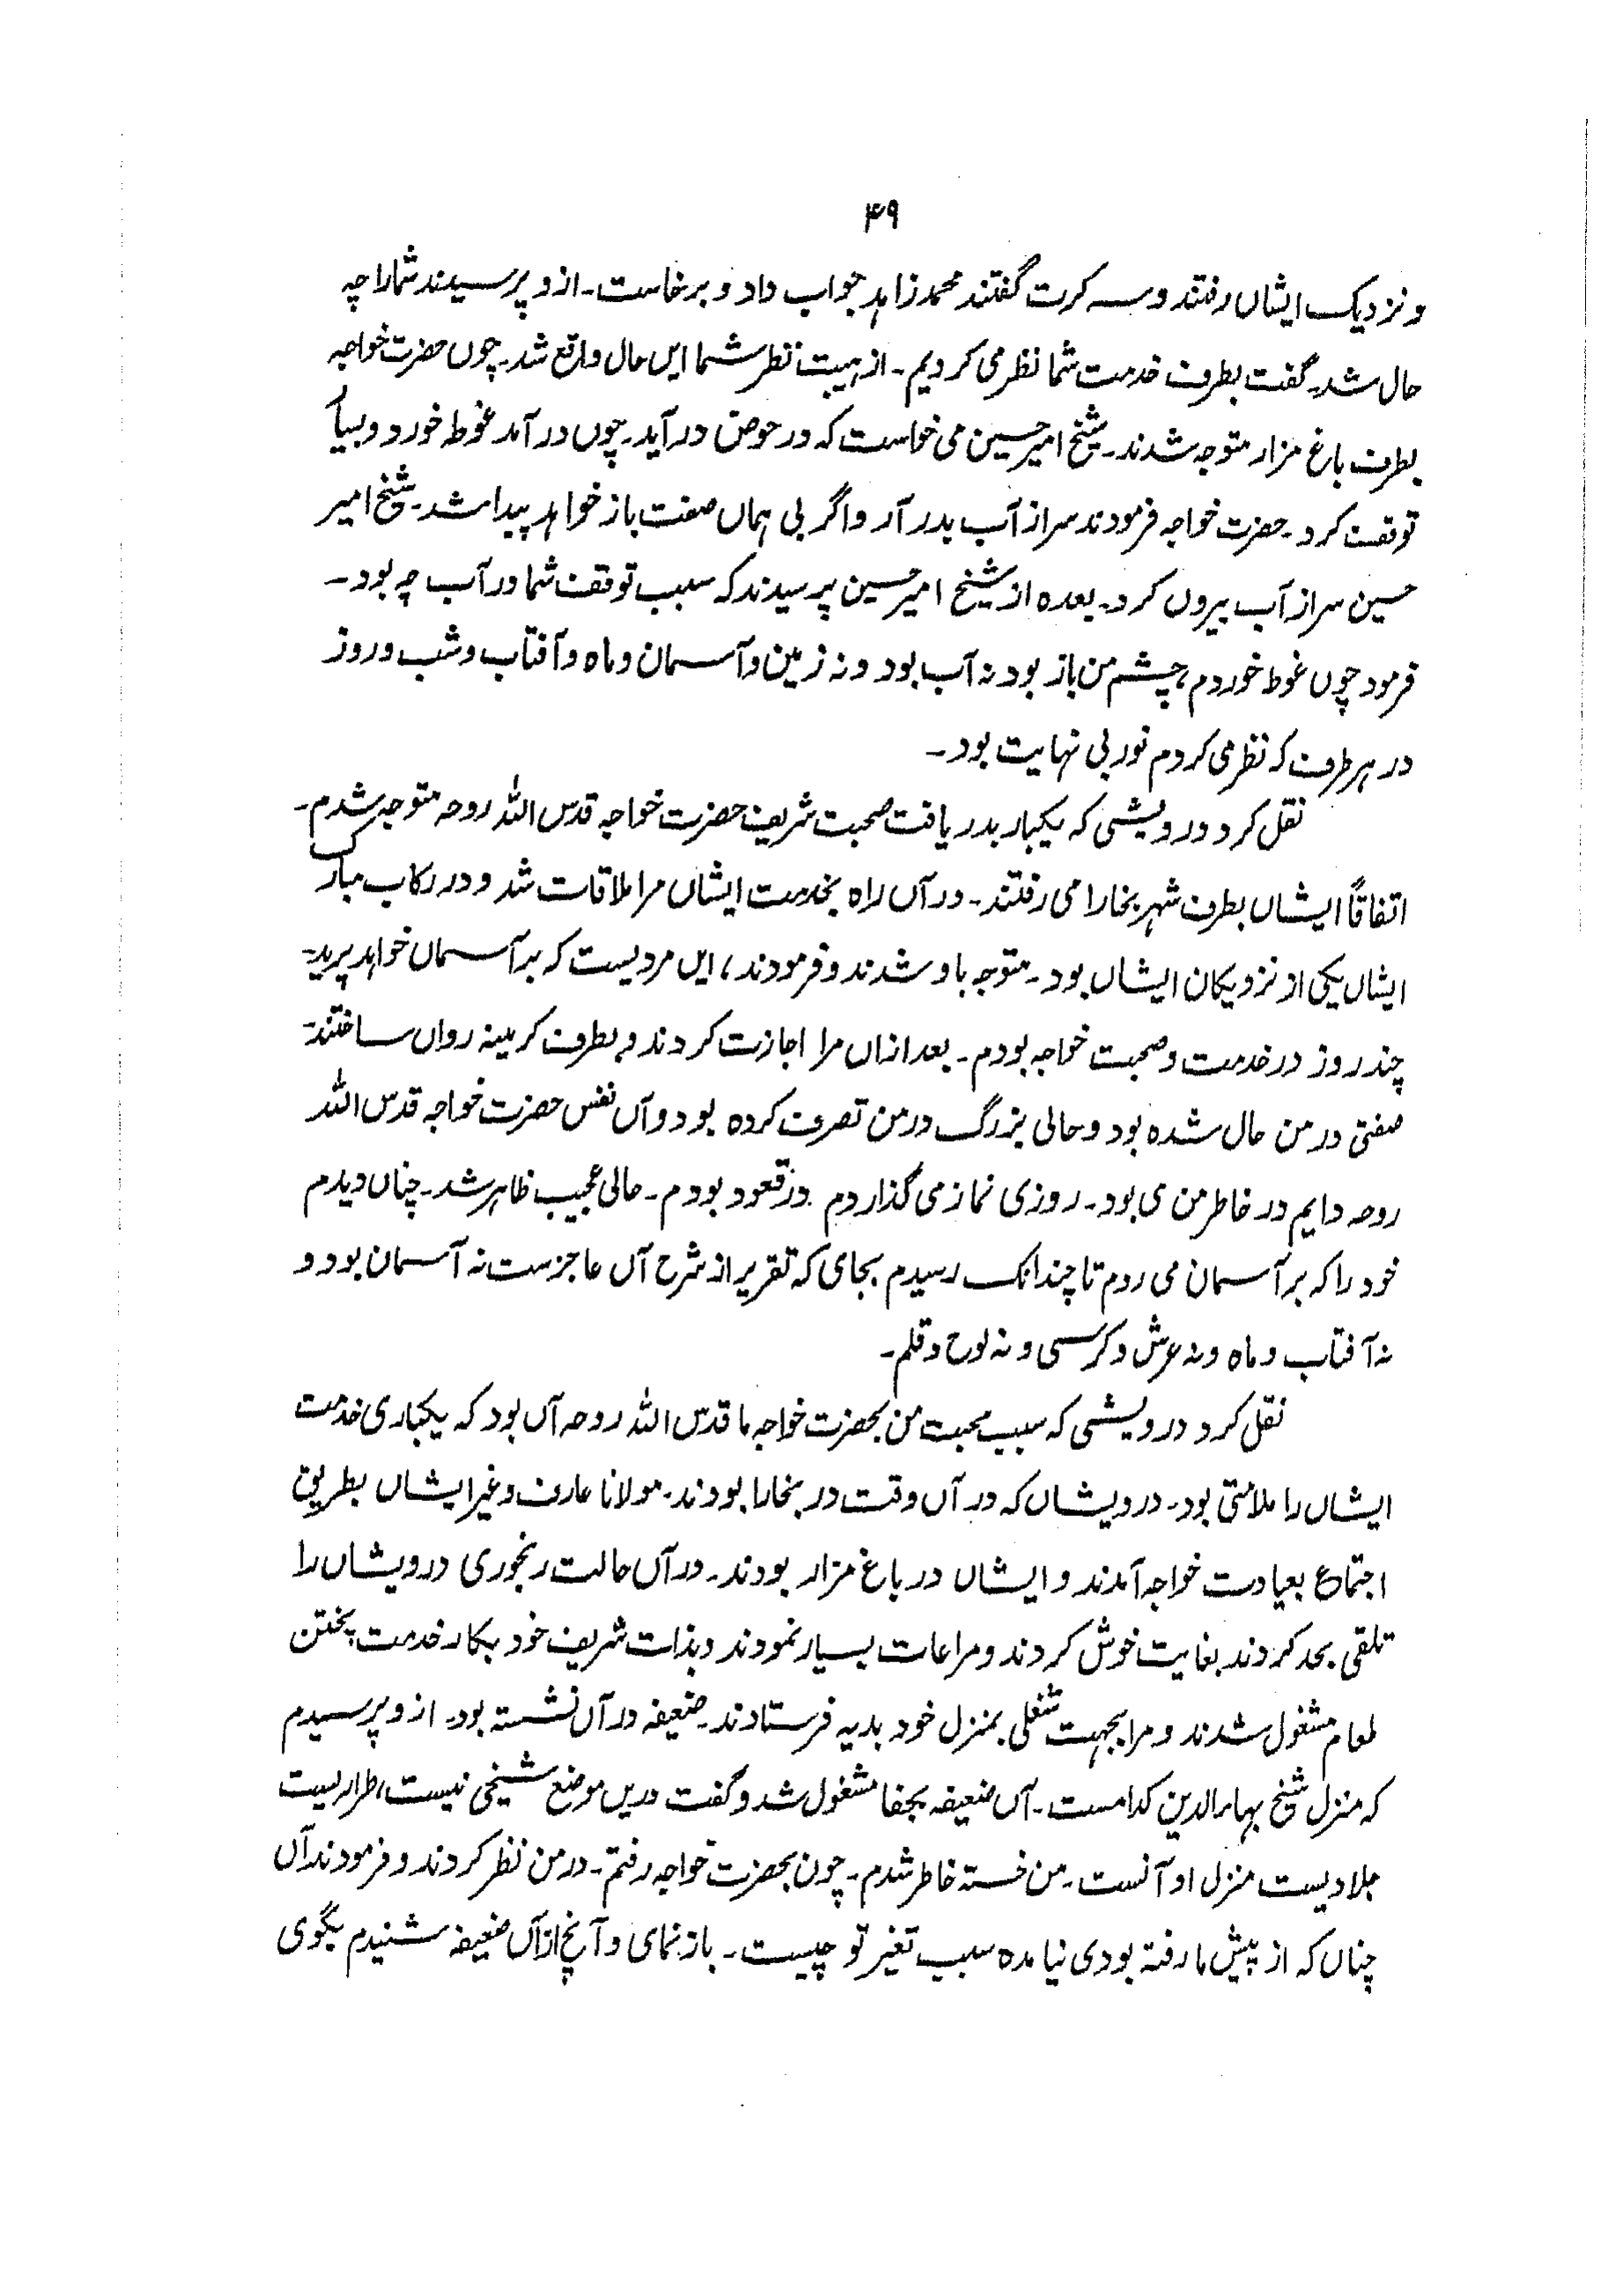 ۴۹
و نزدیک ایشاں رفتند و سہ کرت گفتند محمد زاہد جواب داد و برخاست۔ از و پرسیدند شمارا چہ
حال شد۔ گفت بطرف خدمت شما نظر می کردیم۔ از ہیبت نظر شما ایں حال واقع شد۔ چوں حضرت خواجہ
بطرف باغ مزار متوجہ شدند۔ شیخ امیر حسین می خواست کہ در حوض در آید۔ چوں در آمد غوطہ خورد و
توقف کرد۔ حضرت خواجہ فرمودند سر از آب بدر آر و اگر بی ہماں صفت باز خواہد پیدا شد۔ شیخ امیر
حسین سر از آب بیروں کرد۔ بعدہ از شیخ امیر حسین پرسیدند کہ سبب توقف شما در آب چہ بود۔
فرمود چوں غوطہ خوردم، چشم من باز بود نہ آب بود و نہ زمین و آسمان و ماہ و آفتاب و شب و روز
در ہر طرف کہ نظر می کردم نور بی نہایت بود۔
نقل کرد درویشی کہ یکبار بدریافت صحبت شریف حضرت خواجہ قدس اللہ روحہ متوجہ شدم۔
اتفاقاً ایشاں بطرف شہر بخارا می رفتند۔ در آں راہ بخدمت ایشاں مرا ملاقات شد و در رکاب مبارک
ایشاں یکی از نزدیکان ایشاں بود۔ متوجہ باو شدند و فرمودند، ایں مردیست کہ بر آسماں خواہد پرید۔
چند روز در خدمت و صحبت خواجہ بودم۔ بعد ازاں مرا اجازت کردند و بطرف کرمینہ رواں ساختند۔
صفتی در من حال شدہ بود و حالی بزرگ در من تصرف کردہ بود و آں نفس حضرت خواجہ قدس اللہ
روحہ دایم در خاطر من می بود۔ روزی نماز می گذاردم در قعود بودم۔ حالی عجیب ظاہر شد۔ چناں دیدم
خود را کہ بر آسمان می روم تا چندانک رسیدم بجای کہ تقریر از شرح آں عاجزست نہ آسمان بود و
نہ آفتاب و ماہ و نہ عرش و کرسی و نہ لوح و قلم۔
نقل کرد درویشی کہ سبب محبت من بحضرت خواجہ ما قدس اللہ روحہ آں بود کہ یکباری خدمت
ایشاں را ملامتی بود۔ درویشاں کہ در آں وقت در بخارا بودند۔ مولانا عارف و غیر ایشاں بطریق
اجتماع بعیادت خواجہ آمدند و ایشاں در باغ مزار بودند۔ در آں حالت رنجوری درویشاں را
تلقی بحد کردند بغایت خوش کردند و مراعات بسیار نمودند و بذات شریف خود بکار خدمت پختن
طعام مشغول شدند و مرا بجہت شغلی بمنزل خود بدیہ فرستادند۔ ضعیفہ در آں نشستہ بود۔ از و پرسیدم
کہ منزل شیخ بہاء الدین کدامست۔ آں ضعیفہ بجفا مشغول شد و گفت دریں موضع شیخی نیست، طراریست
جلادیست منزل او آنست۔ من خستہ خاطر شدم۔ چون بحضرت خواجہ رفتم۔ در من نظر کردند و فرمودند آں
چناں کہ از پیش ما رفتہ بودی نیامدہ سبب تغیر تو چیست۔ باز نمای و آنچ از آں ضعیفہ شنیدم بگوی